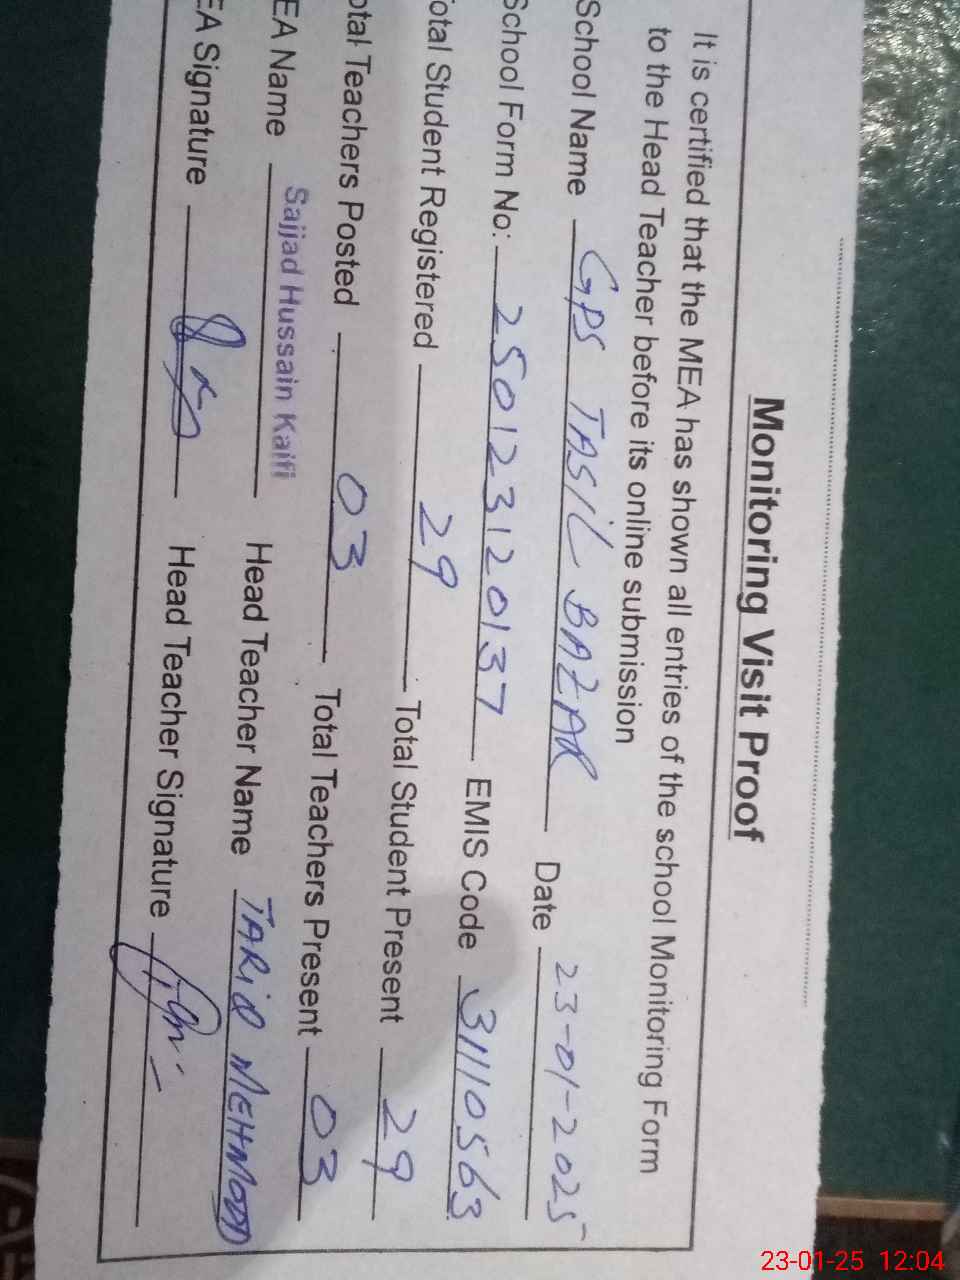 Monitoring Visit Proof
It is certified that the MEA has shown all entries of the school Monitoring Form
to the Head Teacher before its online submission
School Name GPS TASIL BAZAR Date 23-01-2025
School Form No: 250123120137 EMIS Code 31110563
otal Student Registered 29 Total Student Present 29
otal Teachers Posted 03 Total Teachers Present 03
EA Name Sajjad Hussain Kaifi Head Teacher Name TARIQ MEHMOOD
EA Signature Head Teacher Signature
23-01-25 12:04